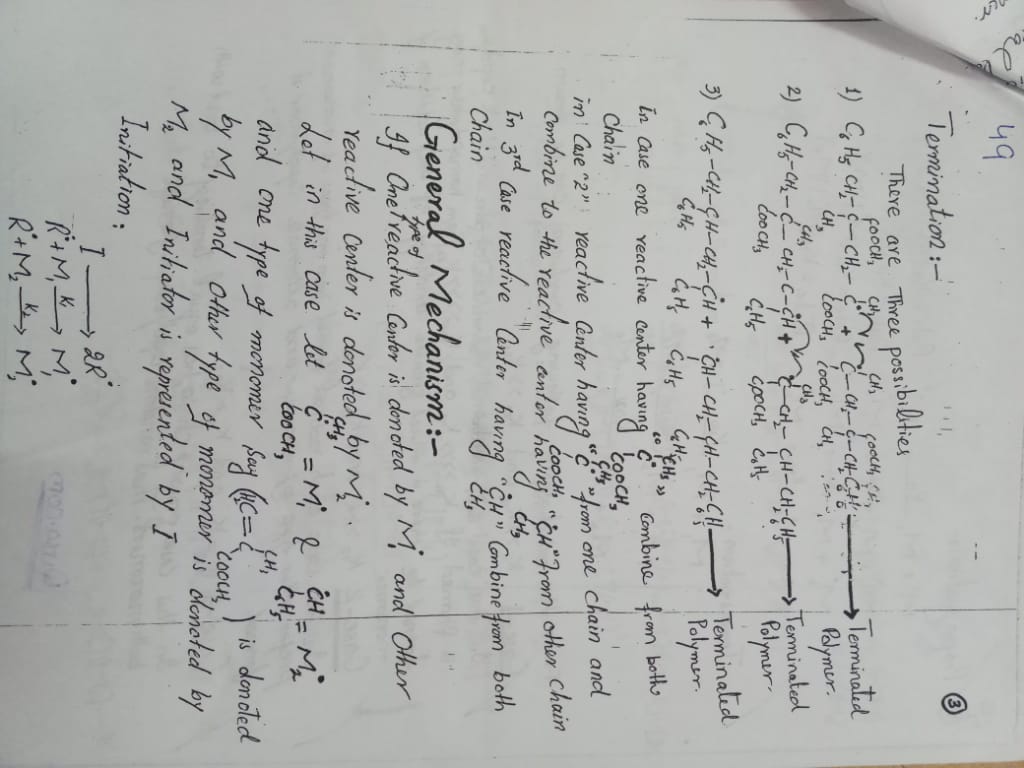 49
③
Termination:-
There are Three possibilties
COOCH₃ CH₃ CH₃ COOCH₃
1) C₆H₅ CH₂-C-CH₂-C + C-CH₂-C-CH₂ → Terminated Polymer.
CH₃ COOCH₃ COOCH₃ CH₃
CH₃ CH₃
2) C₆H₅-CH₂-C-CH₂-C-ĊH + C-CH₂-CH-CH₂C₆H₅ → Terminated Polymer.
COOCH₃ C₆H₅ COOCH₃ C₆H₅
3) C₆H₅-CH₂-CH-CH₂-ĊH + ĊH-CH₂-CH-CH₂-C₆H₅ → Terminated Polymer.
C₆H₅ C₆H₅ C₆H₅ C₆H₅
In case one reactive center having "CH₃ Ċ COOCH₃" combine from both
Chain
in Case "2" reactive Center having "CH₃ Ċ COOCH₃" from one chain and
combine to the reactive center having "ĊH" from other chain
In 3rd case reactive Center having "ĊH" Combine from both
Chain
General Mechanism:-
If One type of reactive Center is donoted by M₁• and Other
reactive Center is donoted by M₂•.
Let in this case let CH₃ Ċ COOCH₃ = M₁• & ĊH C₆H₅ = M₂•
and one type of monomer say (H₂C=C CH₃ COOCH₃) is donoted
by M₁ and Other type of monomer is donoted by
M₂ and Initiator is represented by I
Initiation:
I → 2R•
R•+M₁ →K₁ M₁•
R•+M₂ →K₂ M₁•